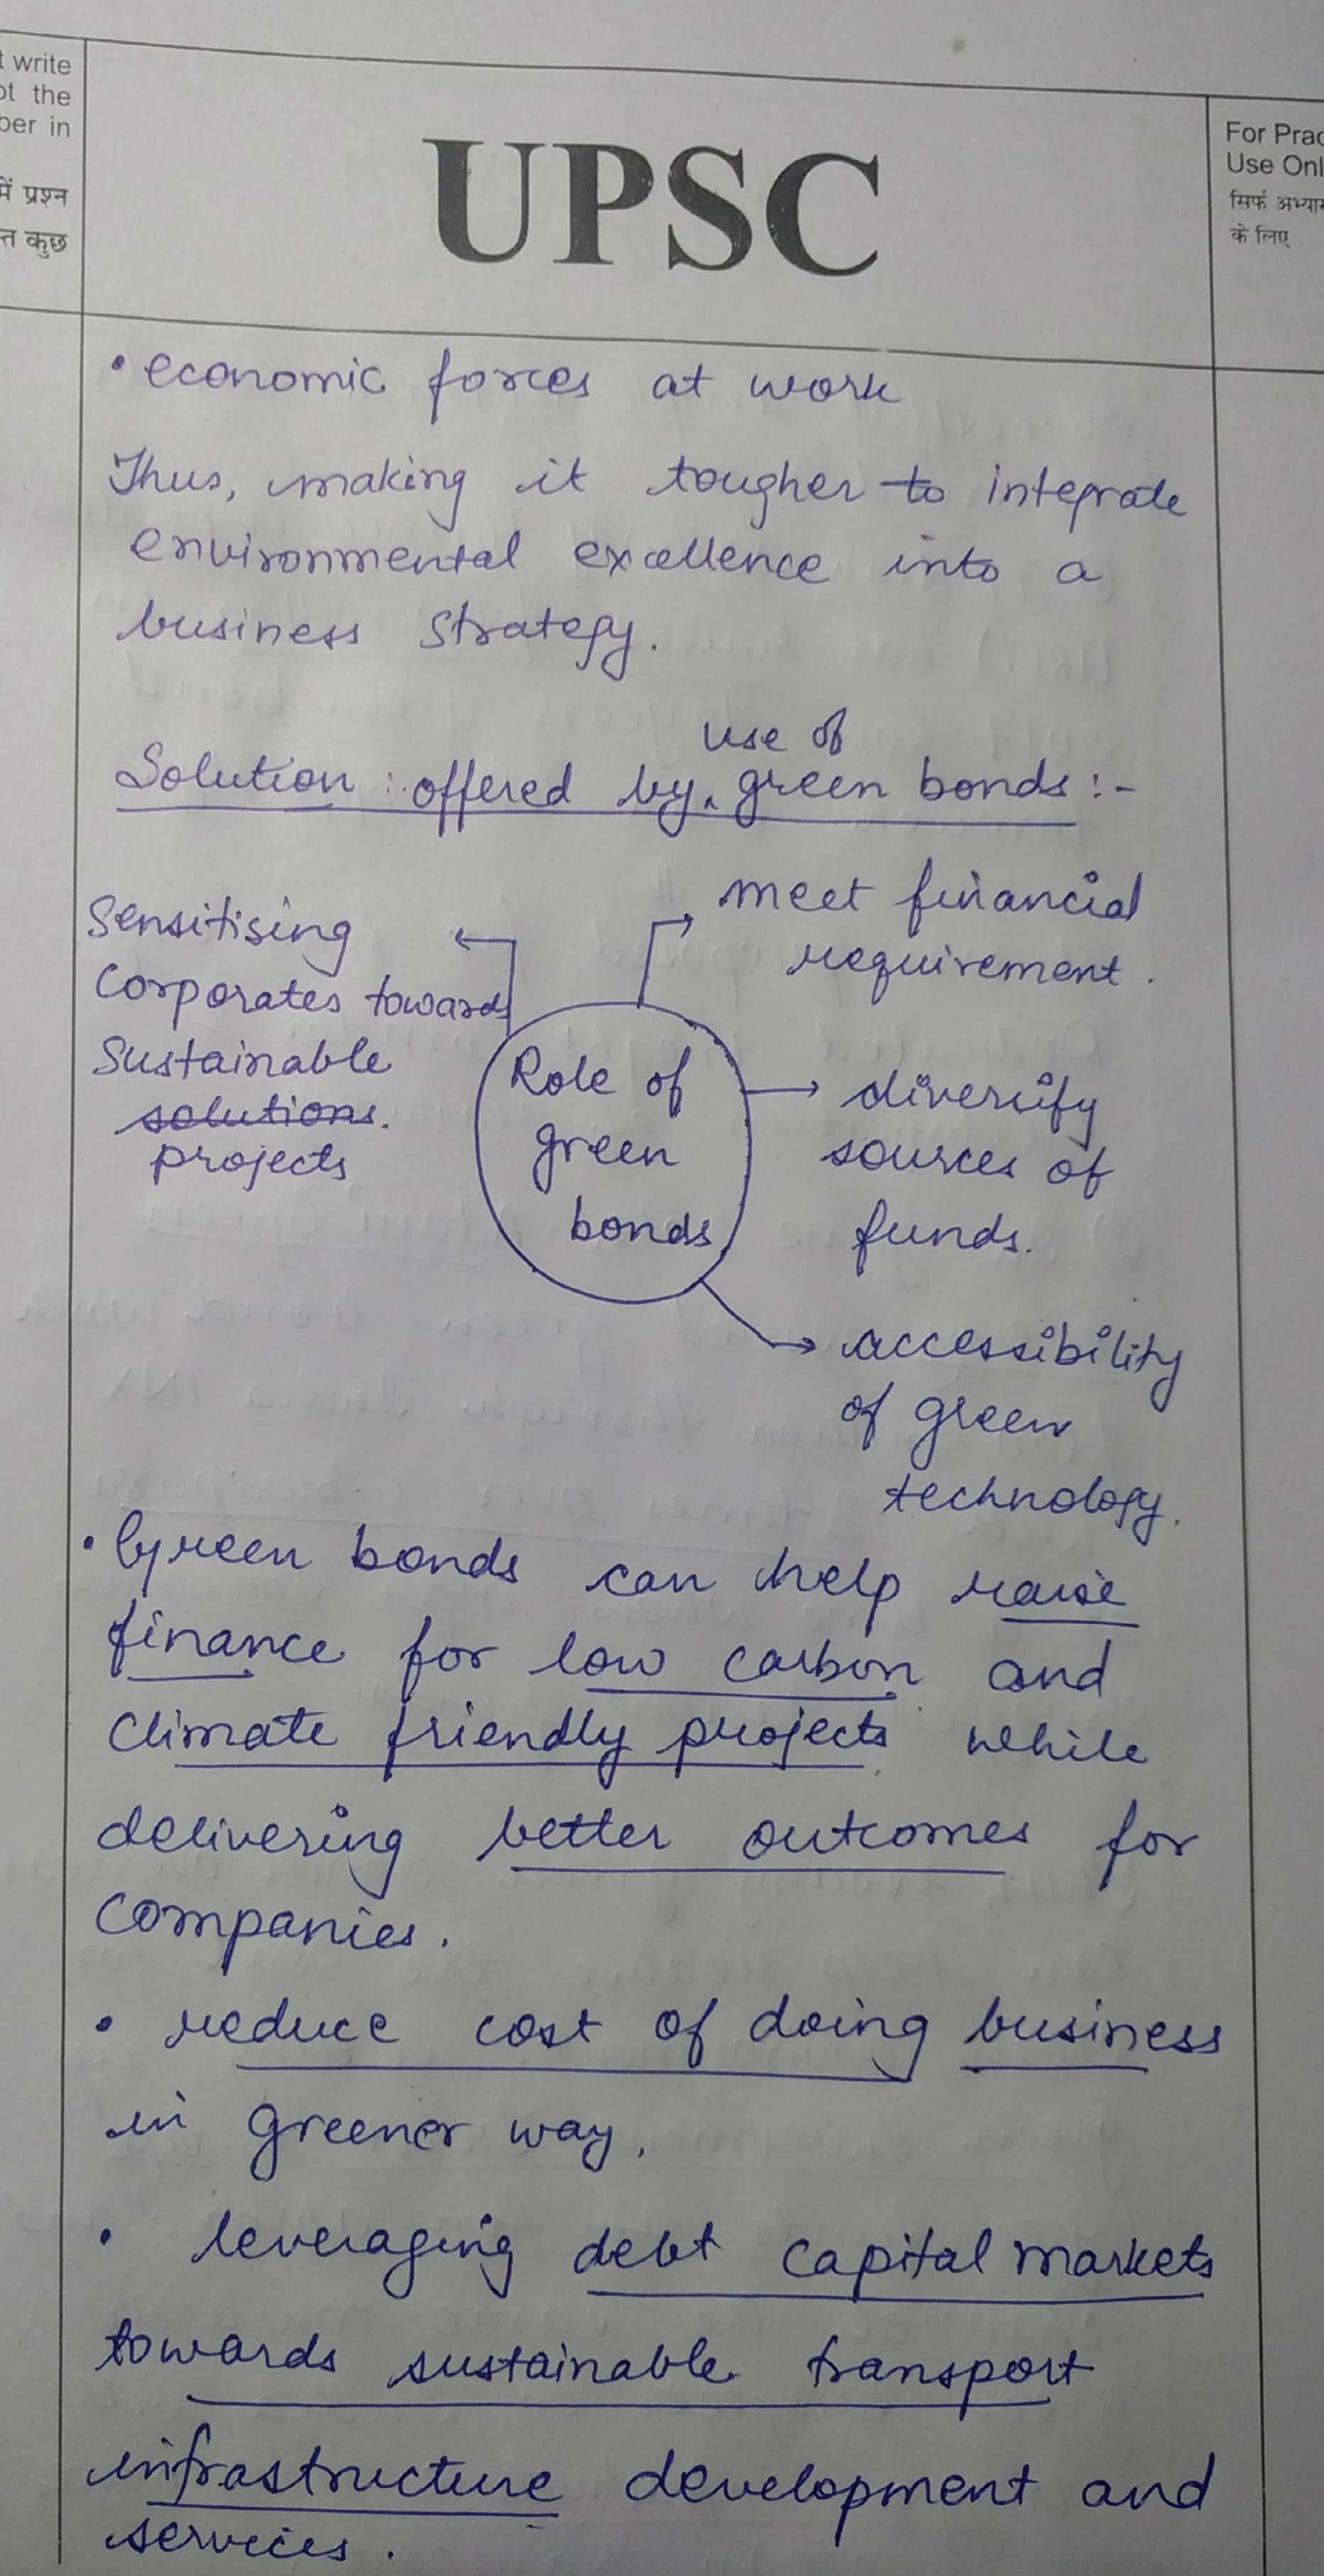 t write
ot the
ber in
में प्रश्न
त कुछ
UPSC
For Prac
Use Onl
सिर्फ अभ्यास
के लिए
• economic forces at work
Thus, making it tougher to integrate
environmental excellence into a
business strategy.
use of
Solution : offered by green bonds :-
Sensitising
Corporates towards
Sustainable
solutions.
projects
meet financial
requirement.
Role of
green
bonds
diversify
sources of
funds.
accessibility
of green
technology.
• Green bonds can help raise
finance for low carbon and
climate friendly projects while
delivering better outcomes for
companies.
• reduce cost of doing business
in greener way.
• leveraging debt capital markets
towards sustainable transport
infrastructure development and
services.